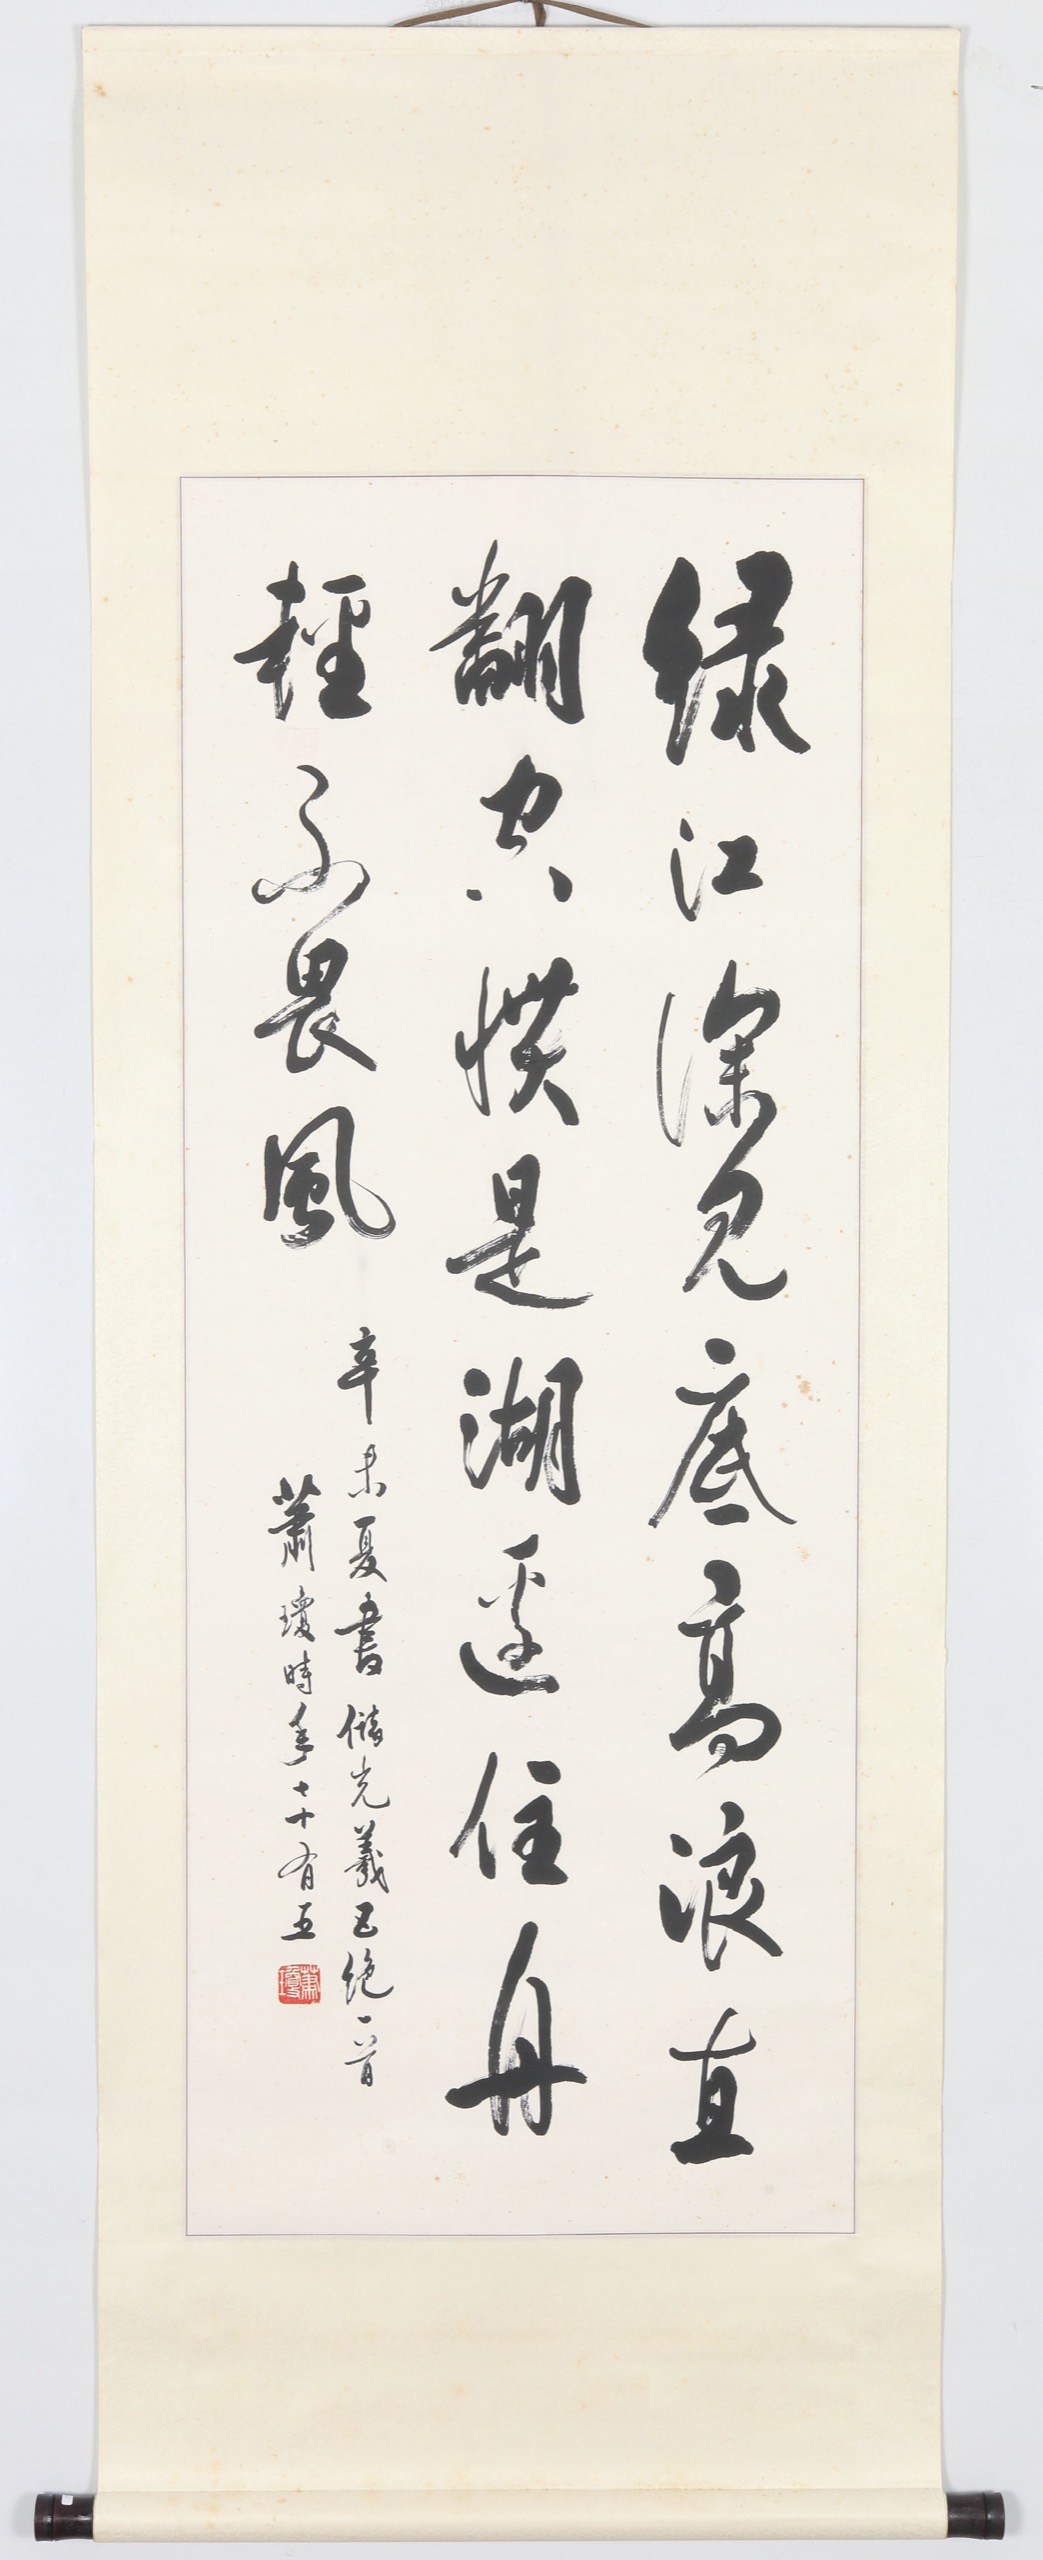 绿江深見底高浪直
翻空慣是湖邊住舟
輕不畏風
辛未夏書儲光羲五絕一首
蕭瓊時年七十有五
蕭瓊